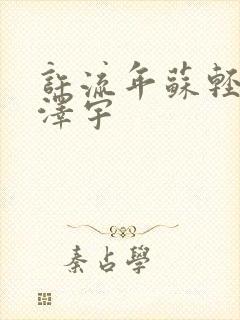 許流年蘇輕
澤宇
秦占學